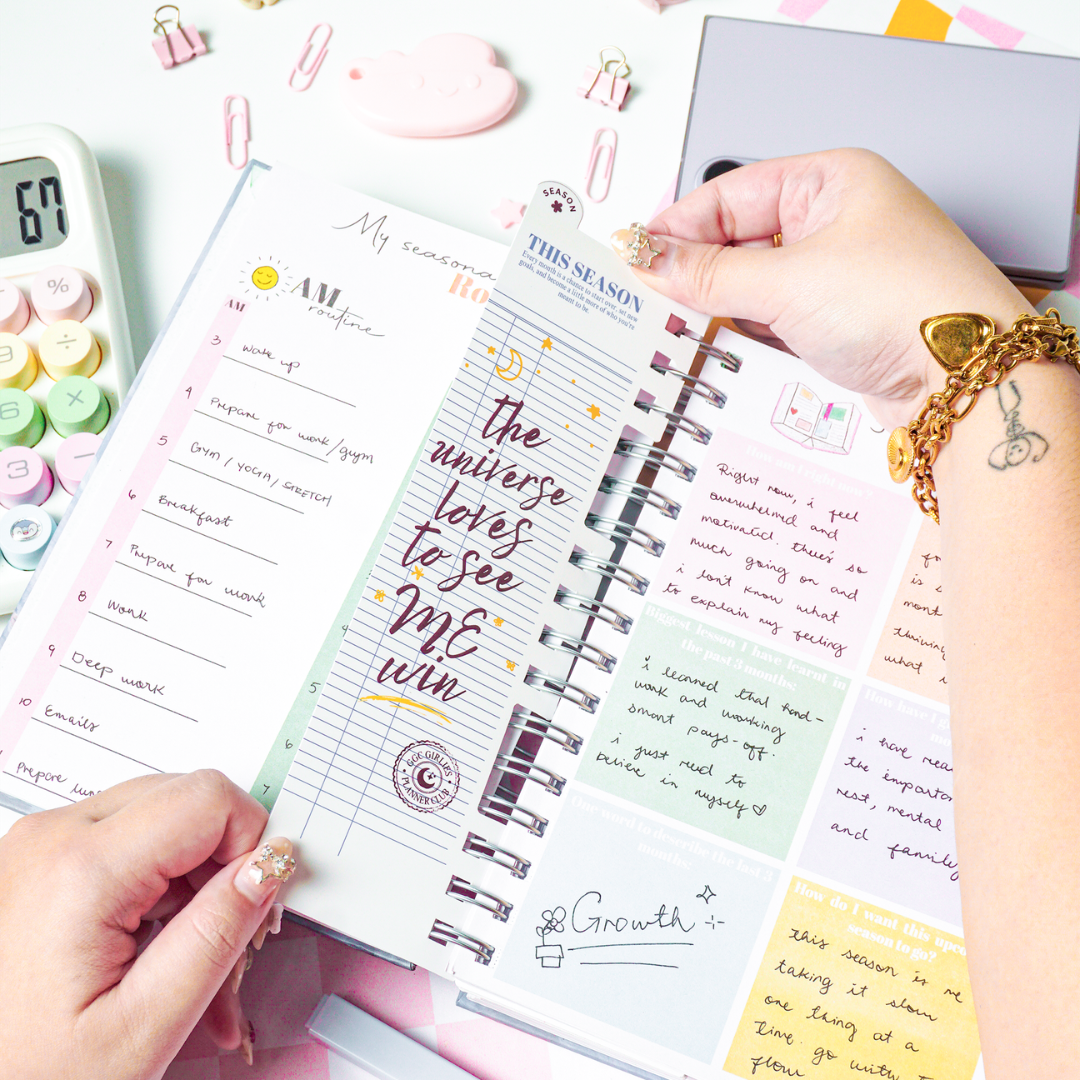 67
%
9
÷
6
×
3
−
My seasona
Ro
AM
routine
AM
3 wake up
4 Prepare for work/gym
5 GYM / YOGA / STRETCH
6 Breakfast
7 Prepare for work
8 Work
9 Deep work
10 Emails
Prepare
4
5
6
7
SEASON
THIS SEASON
Every month is a chance to start over, set new
goals, and become a little more of who you're
meant to be.
the
universe
loves
to see
ME
win
GGC GIRLIES
PLANNER CLUB
How am I right now?
Right now, i feel
overwhelmed and
motivated. there's so
much going on and
i don't know what
to explain my feeling
is
mont
thriving
what i
Biggest lesson I have learnt in
the past 3 months:
i learned that hard-
work and working
smart pays-off.
i just need to
believe in myself
How have I g
mo
i have rea
the importan
rest, mental
and family
One word to describe the last 3
months:
Growth
How do I want this upco
season to go?
this season is me
taking it slow
one thing at a
time. go with t
flow